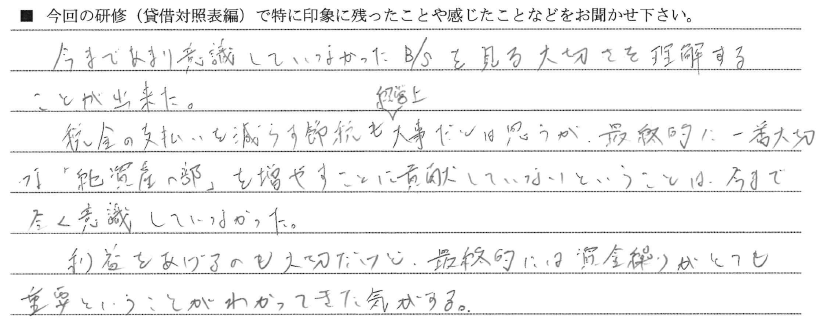 ■ 今回の研修（貸借対照表編）で特に印象に残ったことや感じたことなどをお聞かせ下さい。
今まであまり意識していなかったB/Sを見る大切さを理解する
ことが出来た。
経営上
税金の支払いを減らす節税も大事だとは思うが、最終的に一番大切
な「純資産の部」を増やすことに貢献していないということは、今まで
全く意識していなかった。
利益をあげるのも大切だけど、最終的には資金繰りがとても
重要ということがわかってきた気がする。